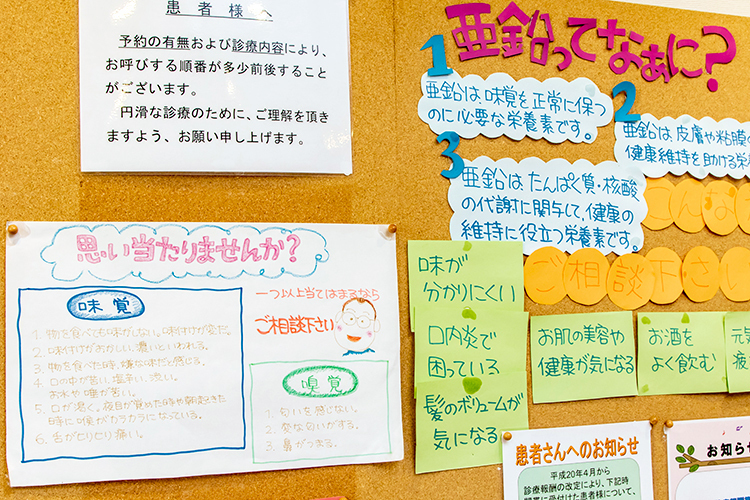 患者様へ
予約の有無および診療内容により、
お呼びする順番が多少前後すること
がございます。
円滑な診療のために、ご理解を頂き
ますよう、お願い申し上げます。
亜鉛ってなぁに?
1
亜鉛は味覚を正常に保つ
のに必要な栄養素です。
2
亜鉛は皮膚や粘膜の
健康維持を助ける栄
3
亜鉛はたんぱく質・核酸
の代謝に関与して、健康の
維持に役立つ栄養素です。
こんな
ご相談下さい
味が
分かりにくい
口内炎で
困っている
髪のボリュームが
気になる
お肌の美容や
健康が気になる
お酒を
よく飲む
元気
疲
思い当たりませんか?
味覚
1. 物を食べても味がしない。味付けが変だ。
2. 味付けがおかしい、濃いといわれる。
3. 物を食べた時、嫌な味だと感じる。
4. 口の中が苦い、塩辛い、渋い。
お水や唾が苦い。
5. 口が渇く、夜目が覚めた時や朝起きた
時に喉がカラカラになっている。
6. 舌がヒリヒリ痛い。
一つ以上当てはまるなら
ご相談下さい
嗅覚
1. 匂いを感じない。
2. 変な匂いがする。
3. 鼻がつまる。
患者さんへのお知らせ
平成20年4月から
診療報酬の改定により、下記時
間帯に受付けた患者様について、
お知らせ